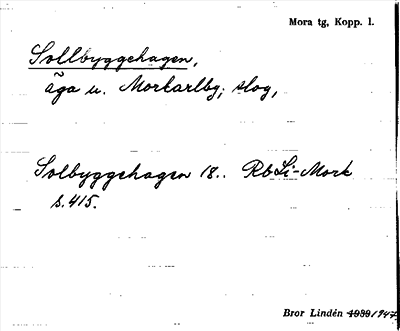 Mora tg, Kopp. l.
Sollbyggehagen,
äga u. Morkarlby; slog,
Solbyggehagen 18.. RbLi-Mork
s. 415.
Bror Lindén 1939/1947